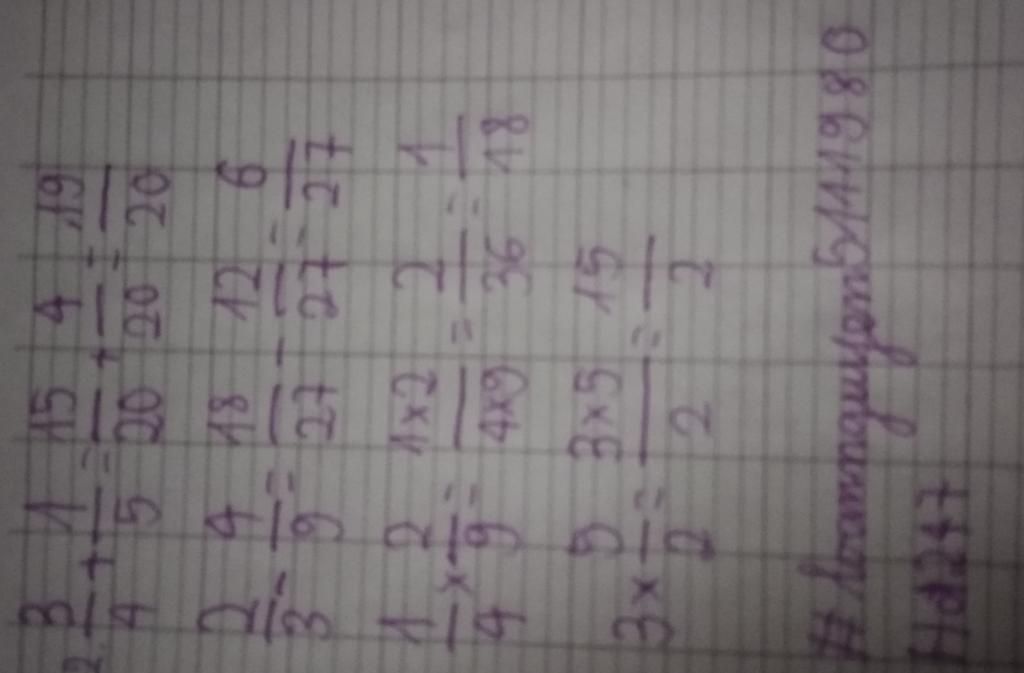 2. 3/4 + 1/5 = 15/20 + 4/20 = 19/20
2/3 - 4/9 = 18/27 - 12/27 = 6/27
1/4 × 2/9 = 1×2/4×9 = 2/36 = 1/18
3 × 5/2 = 3×5/2 = 15/2